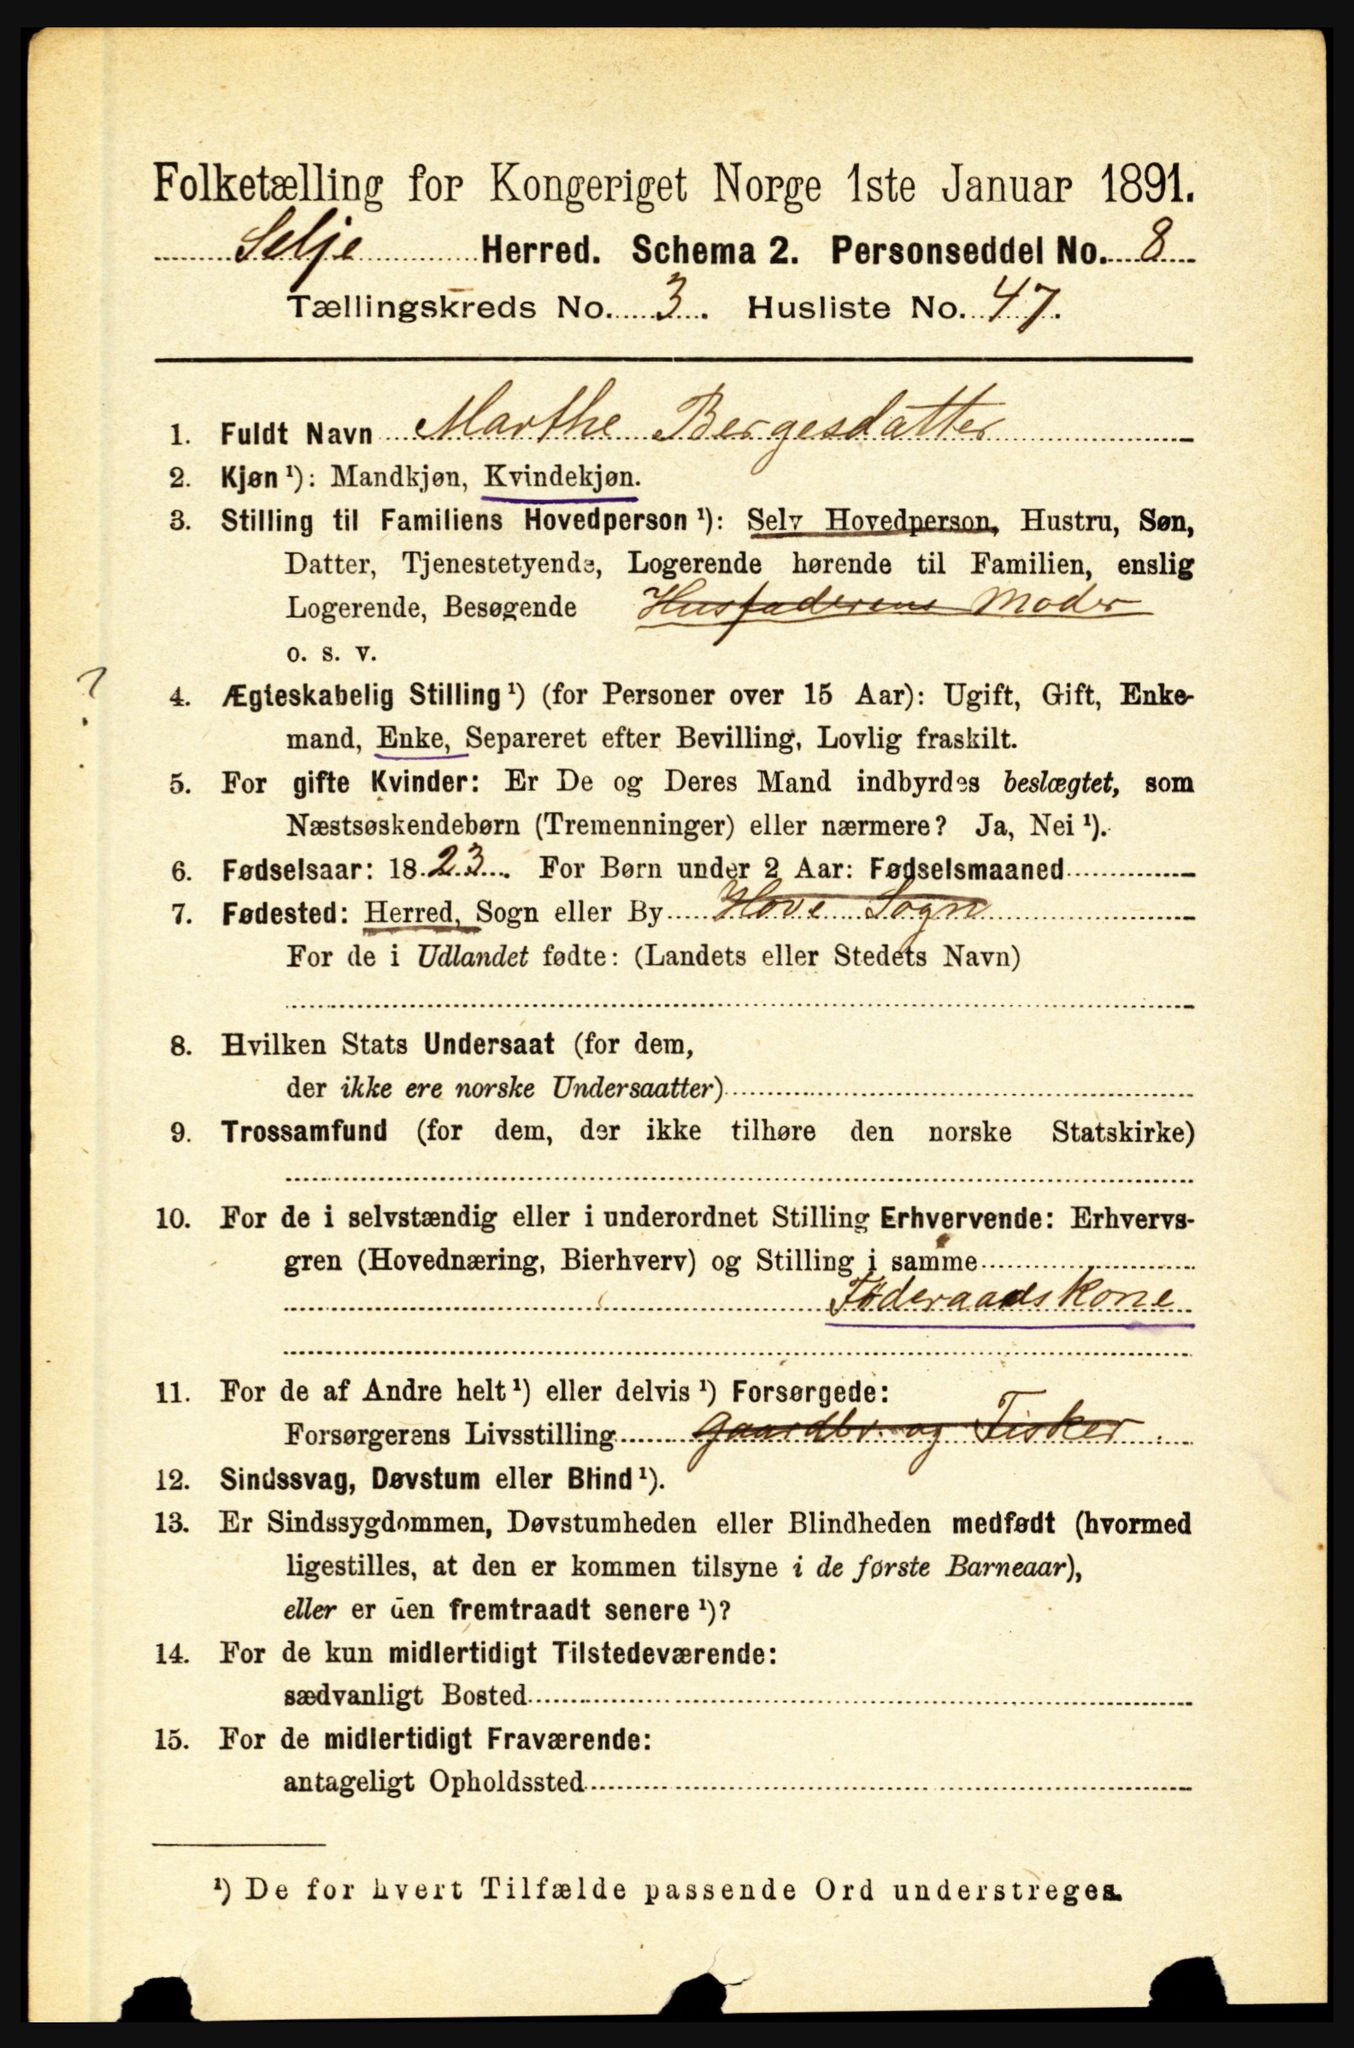 Folketælling for Kongeriget Norge 1ste Januar 1891.
Selje Herred. Schema 2. Personseddel No. 8
Tællingskreds No. 3. Husliste No. 47.
1. Fuldt Navn Marthe Bergesdatter
2. Kjøn ¹): Mandkjøn, Kvindekjøn.
3. Stilling til Familiens Hovedperson ¹): Selv Hovedperson, Hustru, Søn,
Datter, Tjenestetyende, Logerende hørende til Familien, enslig
Logerende, Besøgende Husfaderens Moder
o. s. v.
?
4. Ægteskabelig Stilling ¹) (for Personer over 15 Aar): Ugift, Gift, Enke-
mand, Enke, Separeret efter Bevilling, Lovlig fraskilt.
5. For gifte Kvinder: Er De og Deres Mand indbyrdes beslægtet, som
Næstsøskendebørn (Tremenninger) eller nærmere? Ja, Nei ¹).
6. Fødselsaar: 1823. For Børn under 2 Aar: Fødselsmaaned
7. Fødested: Herred, Sogn eller By Hove Sogn
For de i Udlandet fødte: (Landets eller Stedets Navn)
8. Hvilken Stats Undersaat (for dem,
der ikke ere norske Undersaatter)
9. Trossamfund (for dem, der ikke tilhøre den norske Statskirke)
10. For de i selvstændig eller i underordnet Stilling Erhvervende: Erhvervs-
gren (Hovednæring, Bierhverv) og Stilling i samme
Föderaadskone
11. For de af Andre helt ¹) eller delvis ¹) Forsørgede:
Forsørgerens Livsstilling Gaardbr. og Fisker
12. Sindssvag, Døvstum eller Blind ¹).
13. Er Sindssygdommen, Døvstumheden eller Blindheden medfødt (hvormed
ligestilles, at den er kommen tilsyne i de første Barneaar),
eller er den fremtraadt senere ¹)?
14. For de kun midlertidigt Tilstedeværende:
sædvanligt Bosted
15. For de midlertidigt Fraværende:
antageligt Opholdssted
¹) De for hvert Tilfælde passende Ord understreges.